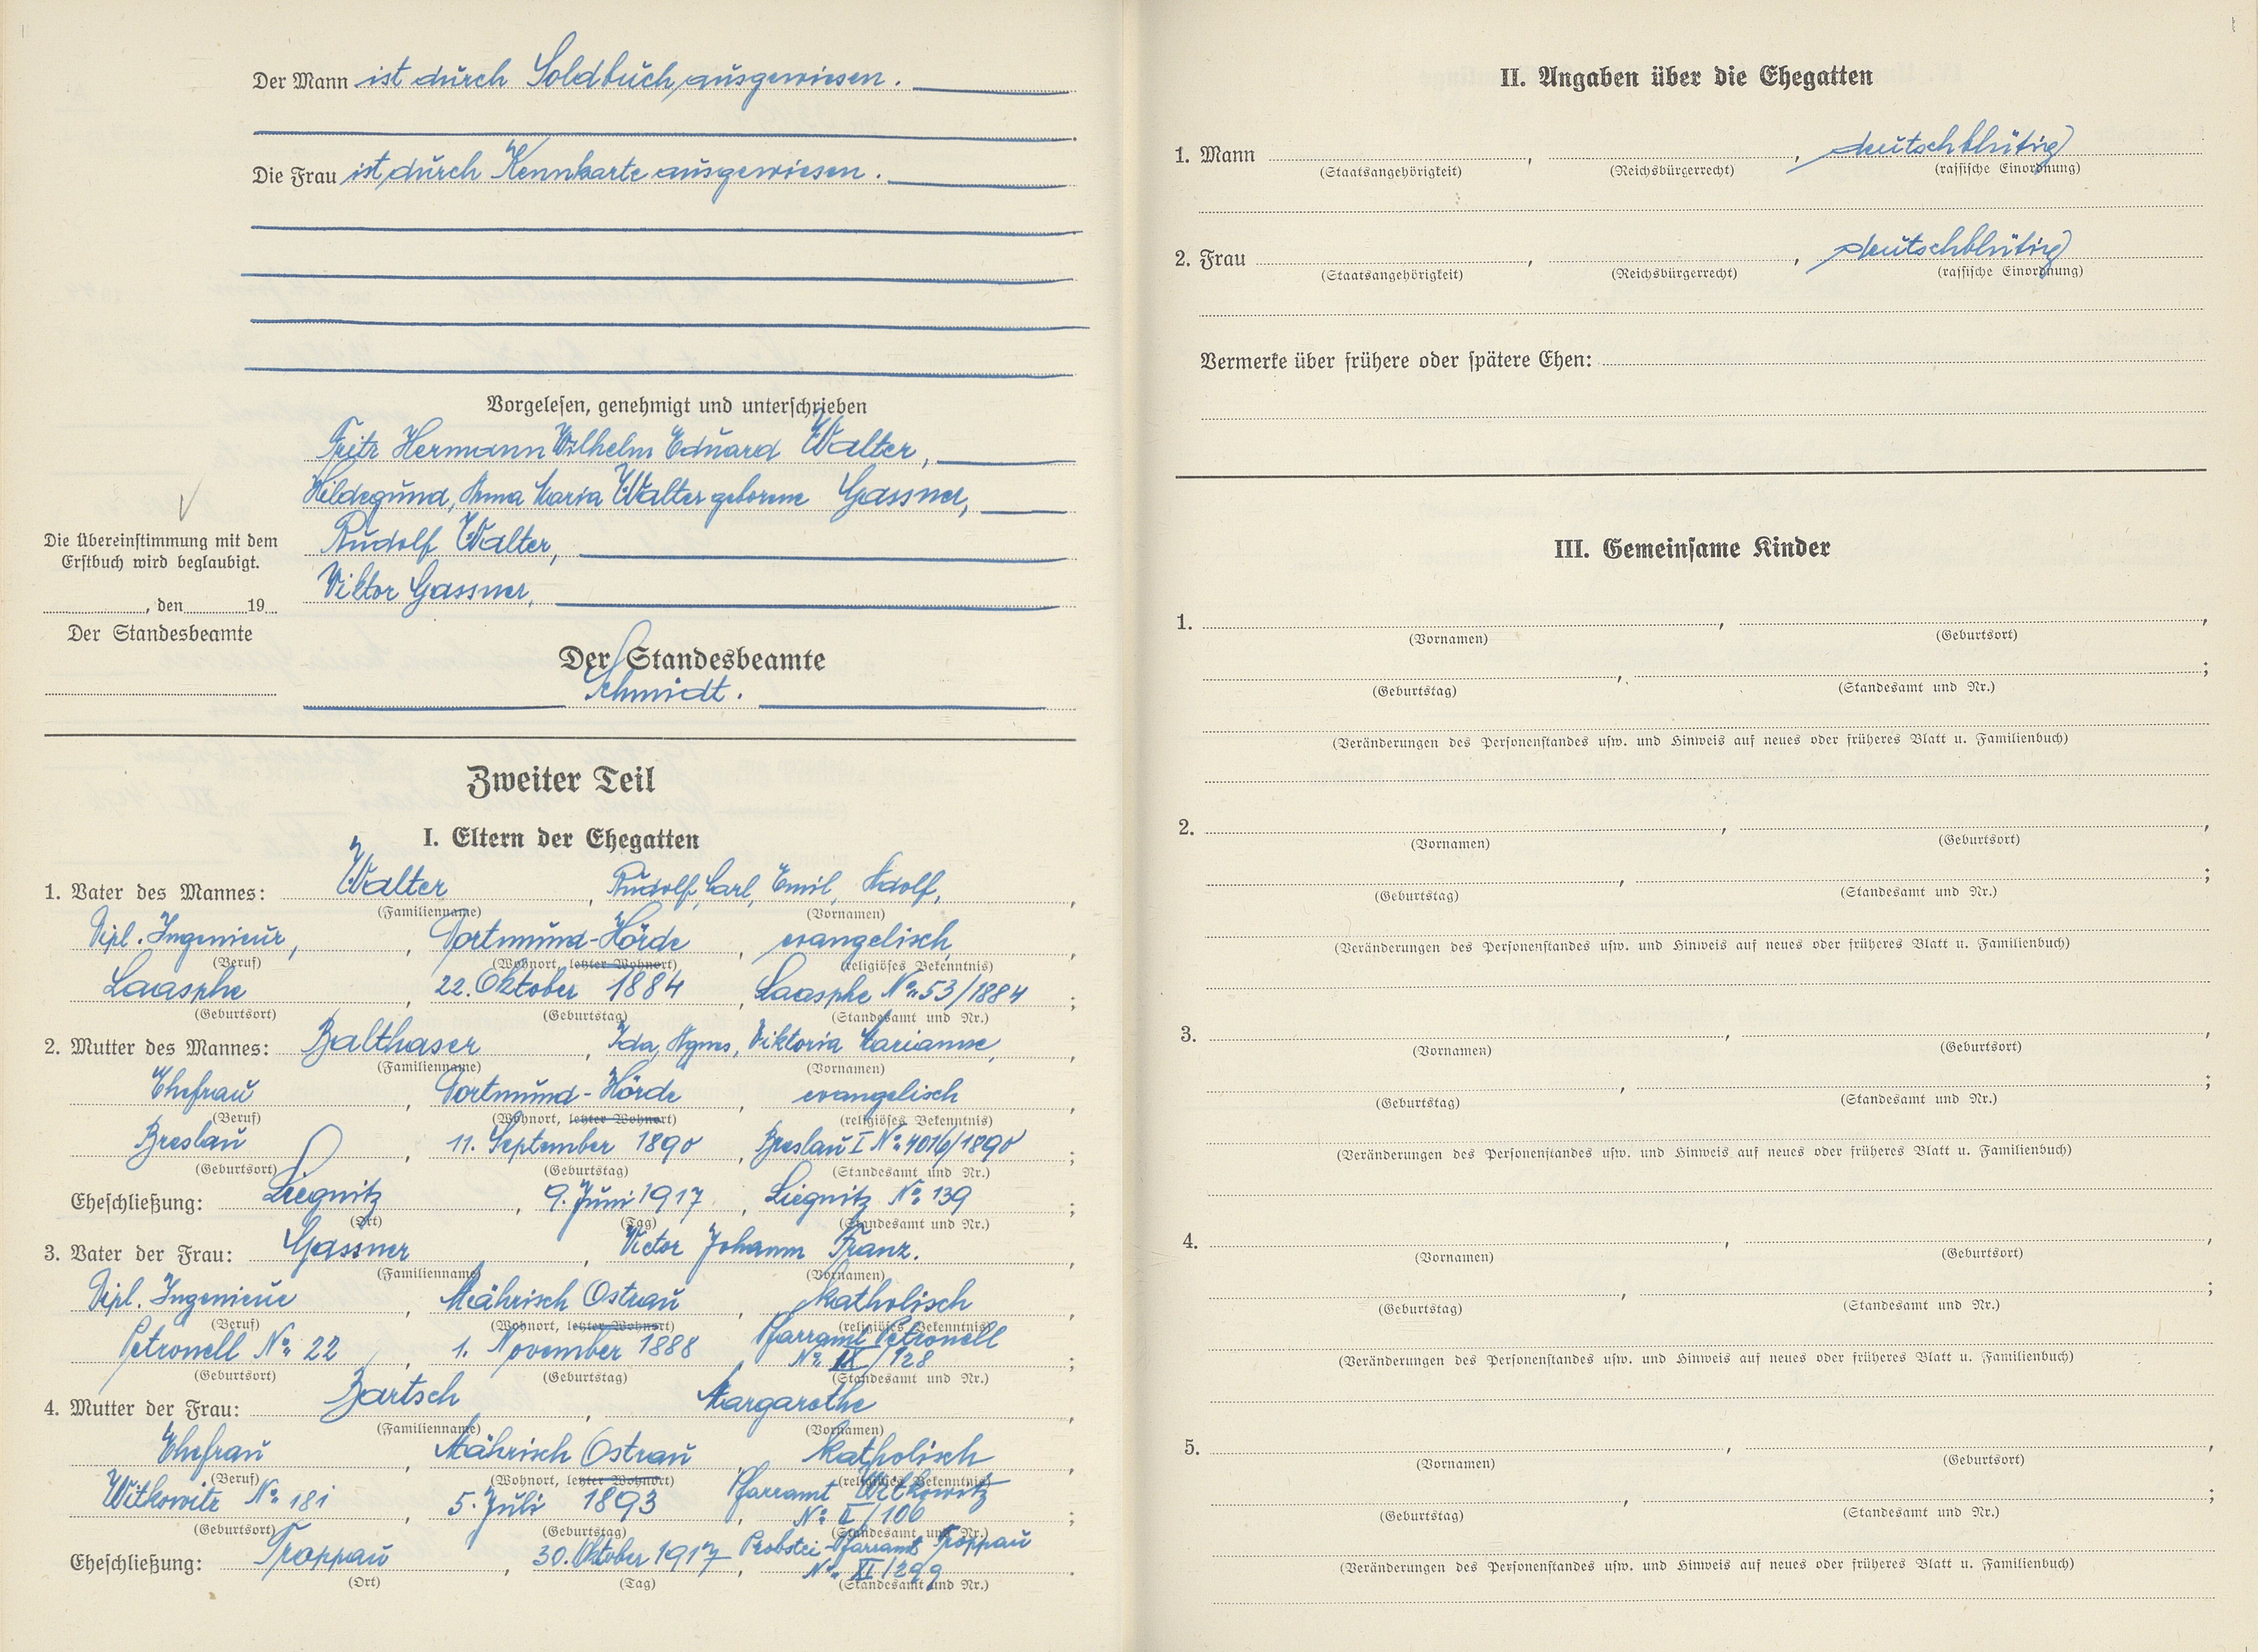 Der Mann ist durch Soldbuch ausgewiesen.
Die Frau ist durch Kennkarte ausgewiesen.
Vorgelesen, genehmigt und unterschrieben
Fritz Hermann Wilhelm Eduard Walter,
Hildegund, Anna Maria Walter geborene Gassner,
Rudolf Walter,
Viktor Gassner,
Die Übereinstimmung mit dem
Erstbuch wird beglaubigt.
, den 19
Der Standesbeamte
Der Standesbeamte
Schmidt.
Zweiter Teil
I. Eltern der Ehegatten
1. Vater des Mannes: Walter, Rudolf, Carl, Emil, Adolf,
(Familienname) (Vornamen)
Dipl. Ingenieur, Dortmund-Hörde, evangelisch,
(Beruf) (Wohnort, letzter Wohnort) (religiöses Bekenntnis)
Laasphe, 22. Oktober 1884, Laasphe No. 53/1884;
(Geburtsort) (Geburtstag) (Standesamt und Nr.)
2. Mutter des Mannes: Balthaser, Ida, Agnes, Viktoria Marianne,
(Familienname) (Vornamen)
Ehefrau, Dortmund-Hörde, evangelisch,
(Beruf) (Wohnort, letzter Wohnort) (religiöses Bekenntnis)
Breslau, 11. September 1890, Breslau I No. /1890;
(Geburtsort) (Geburtstag) (Standesamt und Nr.)
Eheschließung: Liegnitz, 9. Juni 1917, Liegnitz No. 139;
(Ort) (Tag) (Standesamt und Nr.)
3. Vater der Frau: Gassner, Victor Johann Franz.
(Familienname) (Vornamen)
Dipl. Ingenieur, Mährisch Ostrau, katholisch,
(Beruf) (Wohnort, letzter Wohnort) (religiöses Bekenntnis)
Petronell No. 22, 1. November 1888, Pfarramt Petronell
No. IX/128;
(Geburtsort) (Geburtstag) (Standesamt und Nr.)
4. Mutter der Frau: Bartsch, Margarethe,
(Familienname) (Vornamen)
Ehefrau, Mährisch Ostrau, katholisch,
(Beruf) (Wohnort, letzter Wohnort) (religiöses Bekenntnis)
Witkowitz No. 181, 5. Juli 1893, Pfarramt Witkowitz
No. /106;
(Geburtsort) (Geburtstag) (Standesamt und Nr.)
Eheschließung: Troppau, 30. Oktober 1917, Probstei-Pfarramt Troppau
No. XI/299.
(Ort) (Tag) (Standesamt und Nr.)
II. Angaben über die Ehegatten
1. Mann , , deutschblütig
(Staatsangehörigkeit) (Reichsbürgerrecht) (rassische Einordnung)
2. Frau , , deutschblütig
(Staatsangehörigkeit) (Reichsbürgerrecht) (rassische Einordnung)
Vermerke über frühere oder spätere Ehen:
III. Gemeinsame Kinder
1. , ,
(Vornamen) (Geburtsort)
, ;
(Geburtstag) (Standesamt und Nr.)
(Veränderungen des Personenstandes usw. und Hinweis auf neues oder früheres Blatt u. Familienbuch)
2. , ,
(Vornamen) (Geburtsort)
, ;
(Geburtstag) (Standesamt und Nr.)
(Veränderungen des Personenstandes usw. und Hinweis auf neues oder früheres Blatt u. Familienbuch)
3. , ,
(Vornamen) (Geburtsort)
, ;
(Geburtstag) (Standesamt und Nr.)
(Veränderungen des Personenstandes usw. und Hinweis auf neues oder früheres Blatt u. Familienbuch)
4. , ,
(Vornamen) (Geburtsort)
, ;
(Geburtstag) (Standesamt und Nr.)
(Veränderungen des Personenstandes usw. und Hinweis auf neues oder früheres Blatt u. Familienbuch)
5. , ,
(Vornamen) (Geburtsort)
, ;
(Geburtstag) (Standesamt und Nr.)
(Veränderungen des Personenstandes usw. und Hinweis auf neues oder früheres Blatt u. Familienbuch)